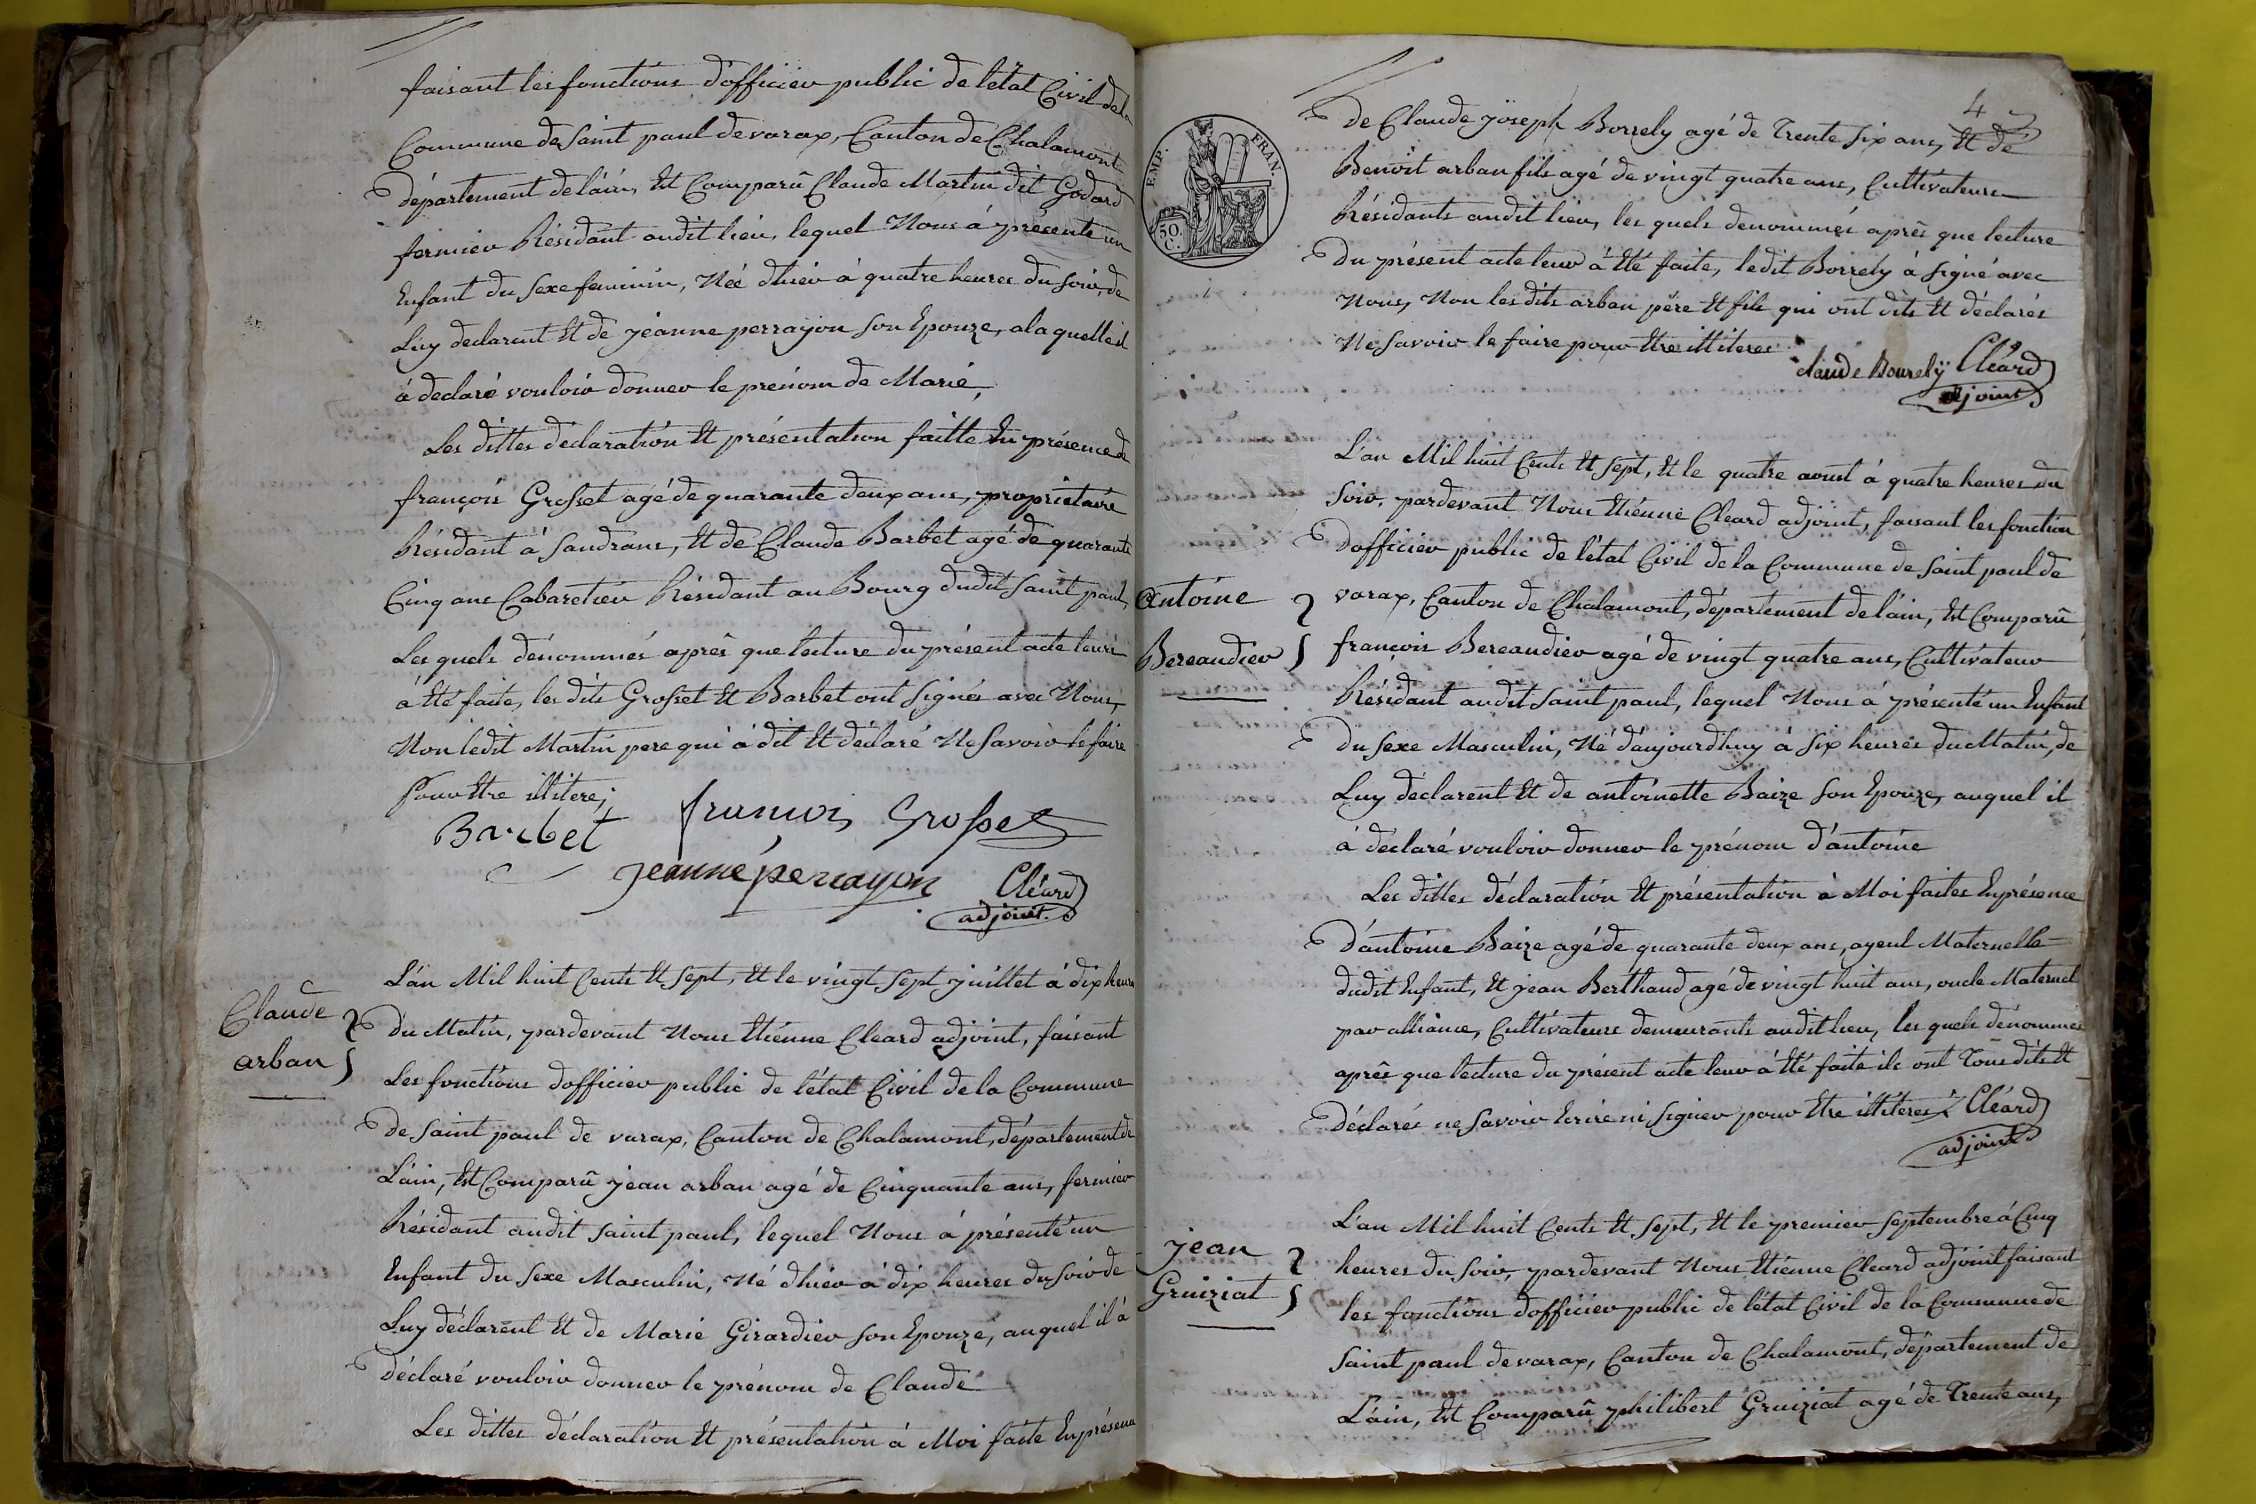 faisant les fonctions d'officier public de l'état Civil de la
Commune de Saint paul de varax, Canton de Chalamont
département de l'ain, Et Comparû Claude Martin dit Godard
fermier Résidant audit lieu, lequel Nous á présenté un
Enfant du Sexe feminin, Néé dhier à quatre heures du soir, de
Luy declarent Et de jeanne perrayon son Epouze, a laquelle il
á declaré vouloir donner le prénom de Marie,
Les dittes déclaration Et présentation faitte En présence de
françois Grosset agé de quarante deux ans, propriétaire
Résidant à Sandrans, Et de Claude Barbet agé de quarante
Cinq ans Cabaretier Résidant au Bourg dudit Saint paul,
Les quels dénommés après que lecture du présent acte leurs
á Eté faite, les dits Grosset Et Barbet ont signés avec Nous,
Non ledit Martin pere qui á dit Et déclaré Ne Savoir le faire
pour Etre illitere;
Barbet françois Grosset
jeanne perrayon Cléard
adjoint.
Claude
arban
L'an Mil huit Cents Et sept, Et le vingt sept juillet á dix heures
du Matin, pardevant Nous Etiénne Cleard adjoint, faisant
Les fonctions dofficier public de l'état Civil de la Commune
de Saint paul de varax, Canton de Chalamont, département de
L'ain, Est Comparû jean arban agé de Cinquante ans, fermier
Résidant audit Saint paul, lequel Nous á présenté un
Enfant du Sexe Masculin, Né dhier à dix heures du Soir de
Luy déclarent Et de Marie Girardier son Epouze, auquel il á
déclaré vouloir donner le prénom de Claude
Les dittes déclaration Et présentation á Moi faite En présence
4
EMP. FRAN.
50.
C.
de Claude joseph Borrely agé de Trente Six ans, Et de
Benoit arban fils agé de vingt quatre ans, Cultivateurs
Résidants audit lieu, les quels denommés après que lecture
du présent acte leur á Eté faite, ledit Borrely à signé avec
Nous, Non les dits arban père Et fils qui ont dits Et déclarés
Ne Savoir le faire pour Etre illiteres
claude Bourelÿ Cléard
adjoint
Antoine
Bereaudier
L'an Mil huit Cents Et Sept, Et le quatre aoust á quatre heures du
Soir, pardevant Nous Etiénne Cleard adjoint, faisant les fonction
dofficier public de l'état Civil de la Commune de Saint paul de
varax, Canton de Chalamont, département de l'ain, Est Comparû
françois Bereaudier agé de vingt quatre ans, Cultivateur
Résidant audit Saint paul, lequel Nous á présenté un Enfant
du Sexe Masculin, Né d'aujourdhuy á Six heures du Matin, de
Luy déclarent Et de antoinette Baize son Epouze, auquel il
á déclaré vouloir donner le prénom d'antoine
Les dittes déclaration Et présentation á Moi faites En présence
D'antoine Baize agé de quarante deux ans, ayeul Maternelle
dudit Enfant, Et jean Berthaud agé de vingt huit ans, oncle Maternel
par alliance, Cultivateurs demeurants audit lieu, les quels dénommés
après que lecture du présent acte leur á Eté faite ils ont Tous dits Et
Déclarés ne Savoir Ecrire ni Signer pour Etre illiteres Cléard
adjoint
jean
Gruiziat
L'an Mil huit Cents Et Sept, Et le premier Septembre á Cinq
heures du Soir, pardevant Nous Etiénne Cleard adjoint faisant
les fonctions dofficier public de l'état Civil de la Commune de
Saint paul de varax, Canton de Chalamont, département de
L'ain, Est Comparû philibert Gruiziat agé de Trente ans,